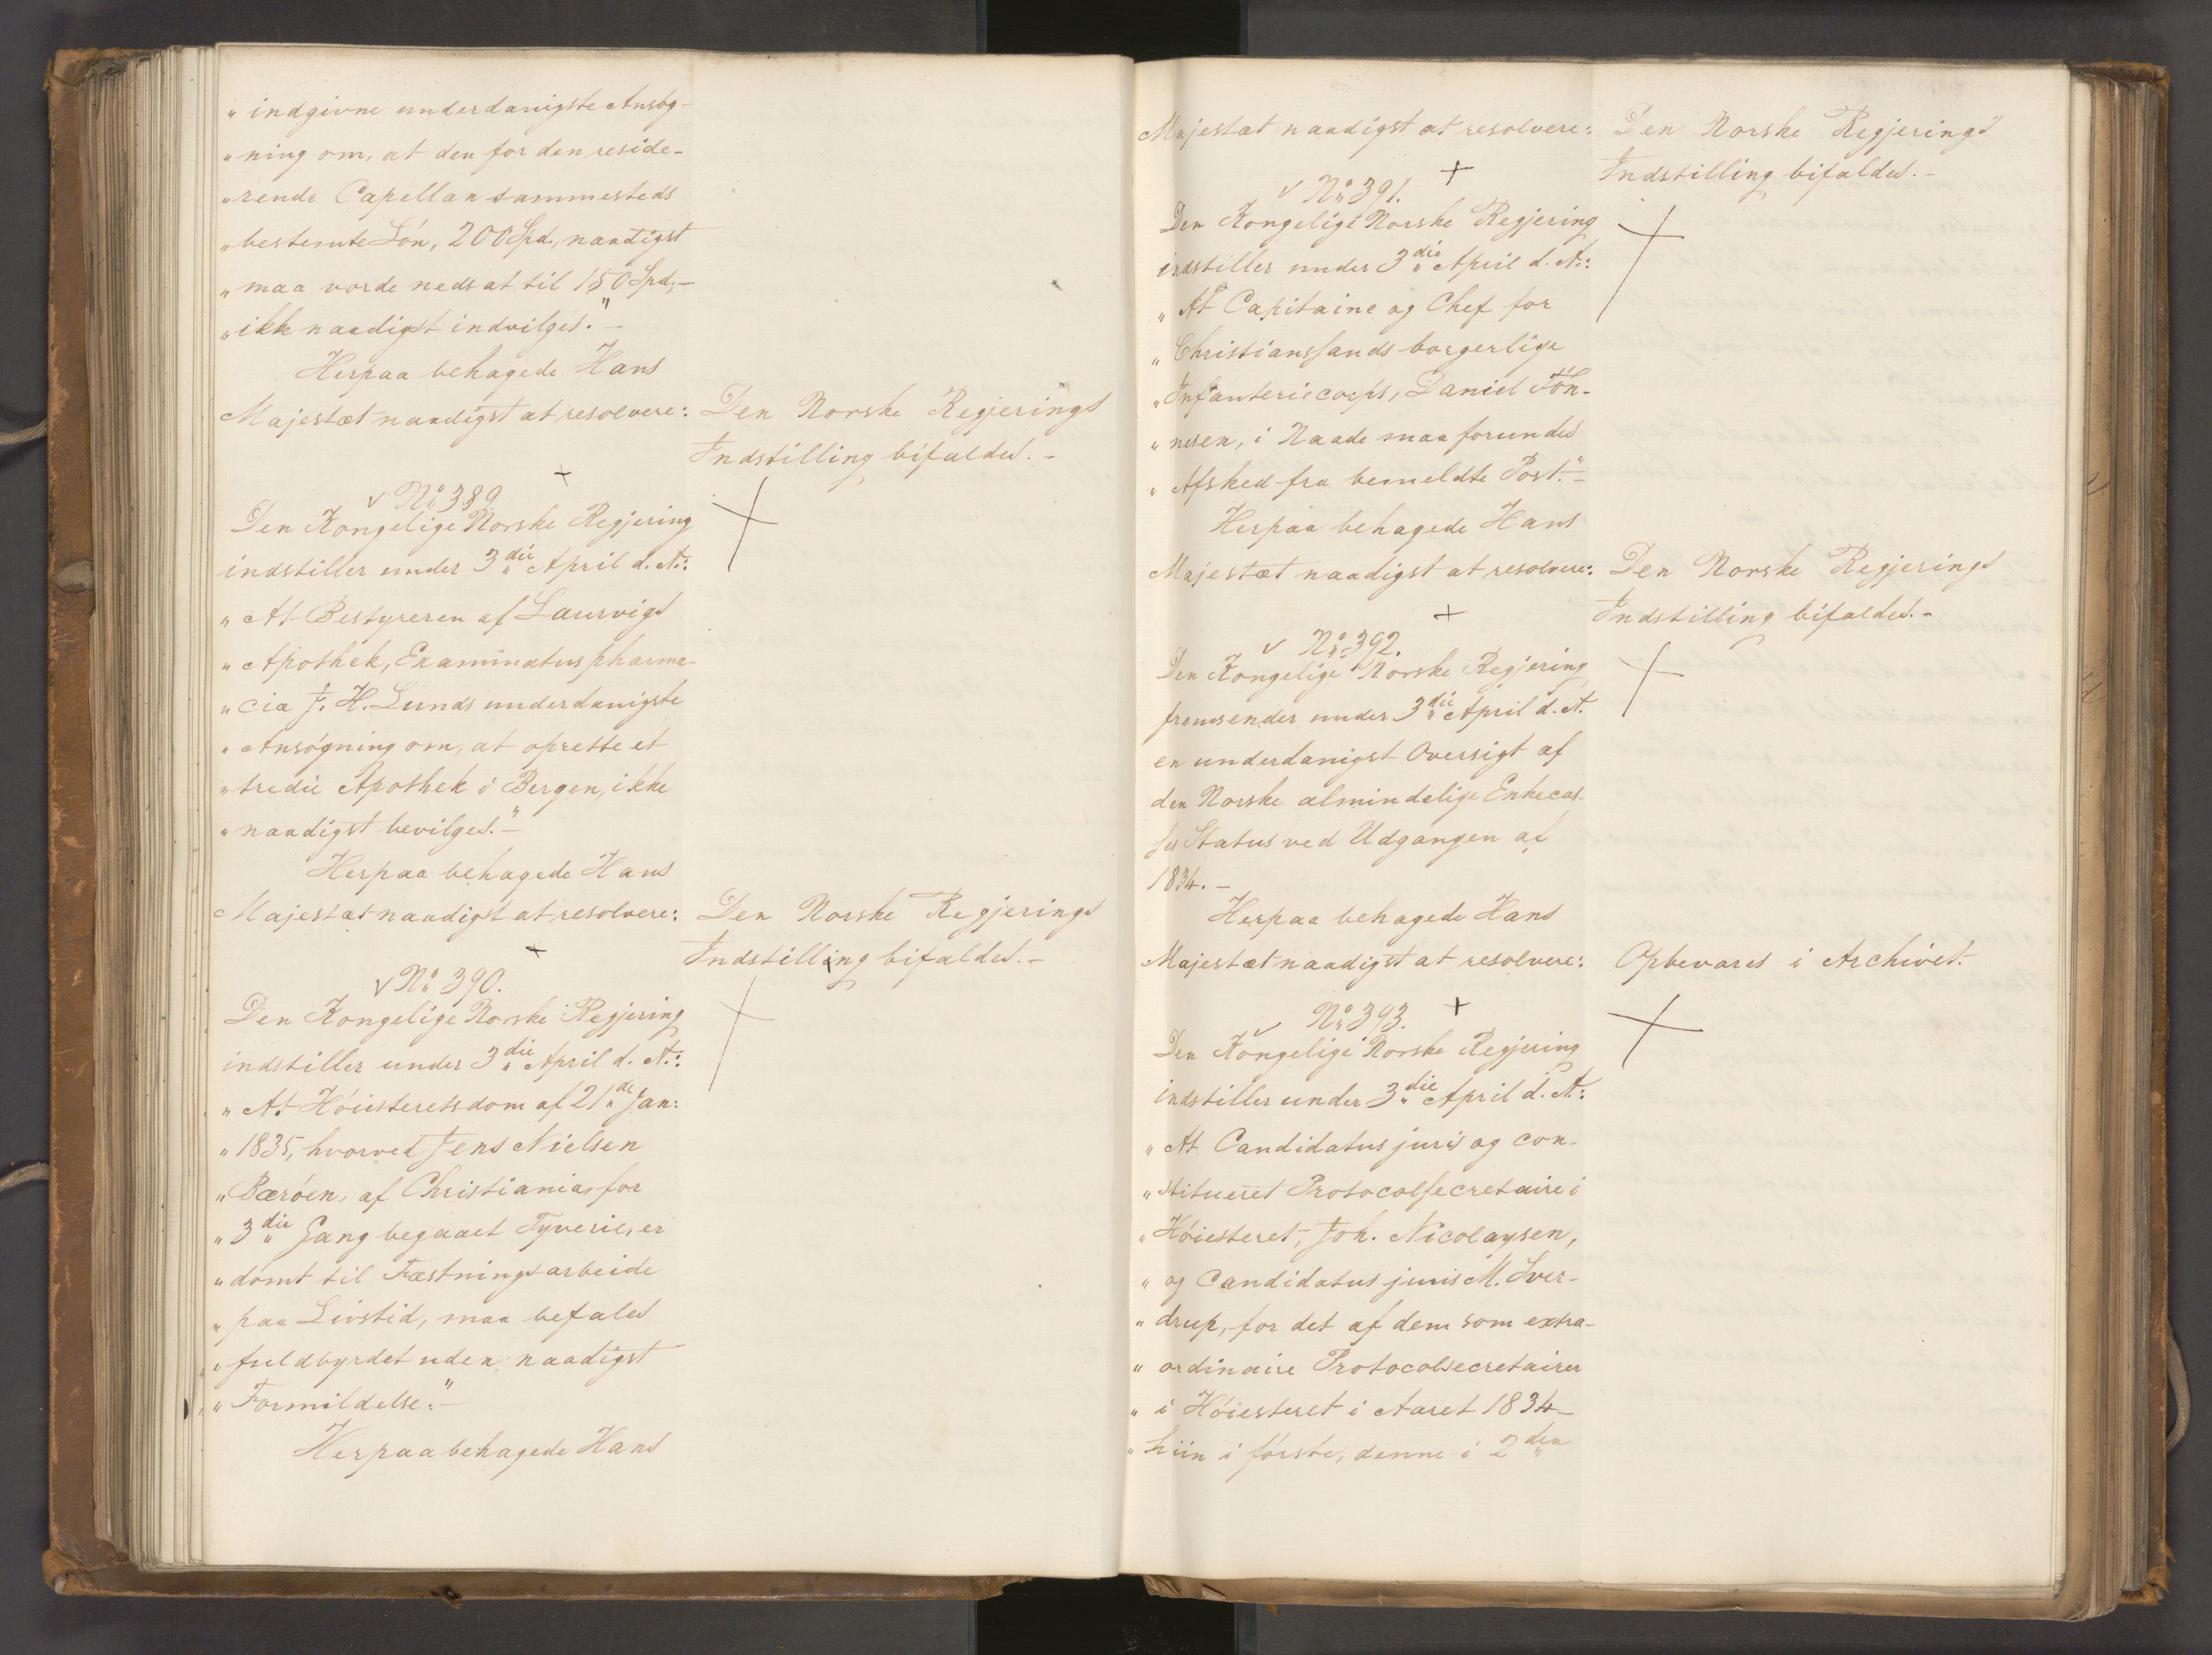 „indgivne underdanigste Ansøg-
„ning om, at den for den reside-
„rende Capellan sammesteds
„bestemte Løn, 200 Spd., naadigst
„maa vorde nedsat til 150 Spd,-
„ikke naadigst indvilges."-
Herpaa behagede Hans
Majestæt naadigst at resolvere:
Den Norske Regjerings
Indstilling bifaldes.-
+
√ No 389.
Den Kongelige Norske Regjering
indstiller under 3die April d. A.:
„At Bestyreren af Laurvigs
„Apothek, Examinatus pharma-
„cia J. H. Lunds underdanigste
„Ansøgning om, at oprette et
„tredie Apothek i Bergen, ikke
„naadigst bevilges."-
Herpaa behagede Hans
Majestæt naadigst at resolvere:
Den Norske Regjerings
Indstilling bifaldes.-
+
√ No 390.
Den Kongelige Norske Regjering
indstiller under 3die April d. A.:
„At Høiesteretsdom af 21de Jan:
„1835, hvorved Jens Nielsen
„Bærøen, af Christiania, for
„3die Gang begaaet Tyverie, er
„dømt til Fæstningsarbeide
„paa Livstid, maa befales
„fuldbyrdet uden naadigst
„Formildelse."-
Herpaa behagede Hans
Majestæt naadigst at resolvere:
Den Norske Regjerings
Indstilling bifaldes.-
+
√ No 391.
Den Kongelige Norske Regjering
indstiller under 3die April d. A.:
„At Capitaine og Chef for
„Christianssands borgerlige
„Infanteriecorps, Daniel Tøn-
„nesen, i Naade maa forundes
„Afsked fra bemeldte Post."-
Herpaa behagede Hans
Majestæt naadigst at resolvere:
Den Norske Regjerings
Indstilling bifaldes.-
+
√ No 392.
Den Kongelige Norske Regjering
fremsender under 3die April d. A.
en underdanigst Oversigt af
den Norske almindelige Enkecas-
ses Status ved Udgangen af
1834.-
Herpaa behagede Hans
Majestæt naadigst at resolvere:
Opbevares i Archivet.
+
√ No 393.
Den Kongelige Norske Regjering
indstiller under 3die April d. A.:
„At Candidatus juris og con-
„stitueret Protocolsecretaire i
„Høiesteret, Joh. Nicolaysen,
„og Candidatus juris M. Sver-
„drup, for det af dem som extra-
„ordinaire Protocolsecretairer
„i Høiesteret i Aaret 1834-
„hiin i første, denne i 2den